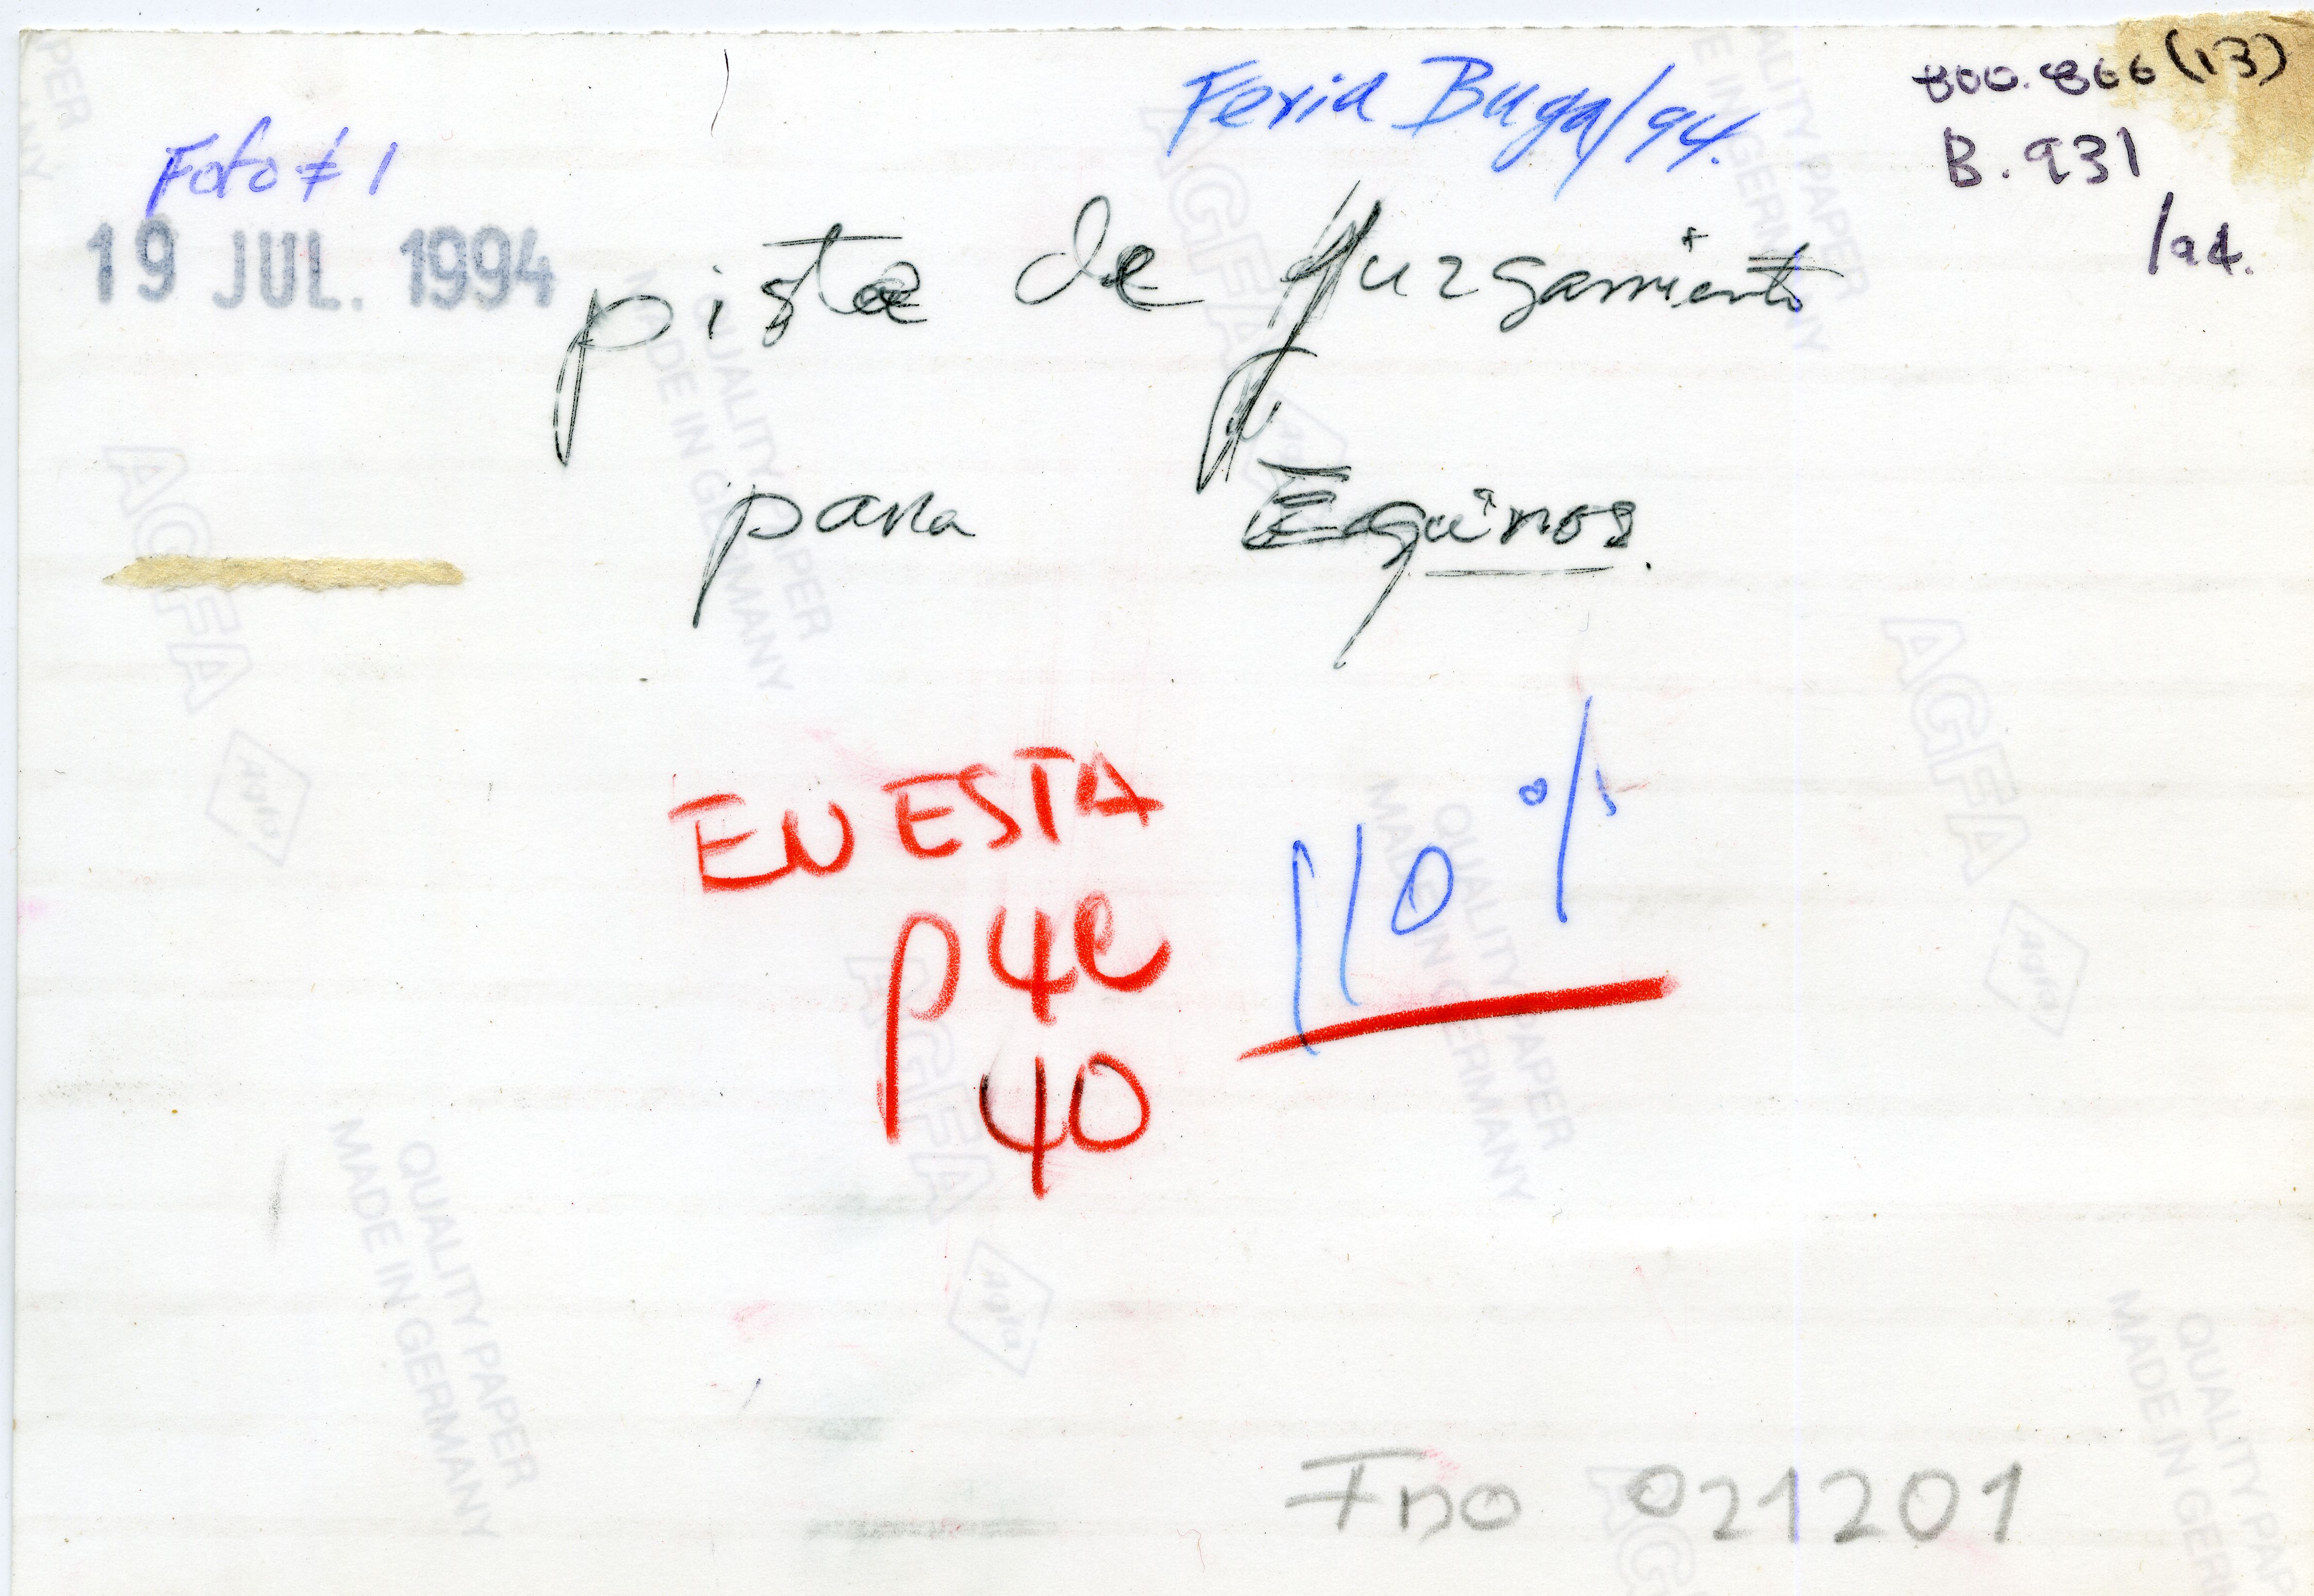 Feria Buga/94.
800.866 (13)
B. 931
/94.
Foto # 1
19 JUL. 1994
pista de Juzgamiento
para Equinos.
EN ESTA
110 %
P 4C
40
Fno 021201
AGFA
Agfa
QUALITY PAPER
MADE IN GERMANY